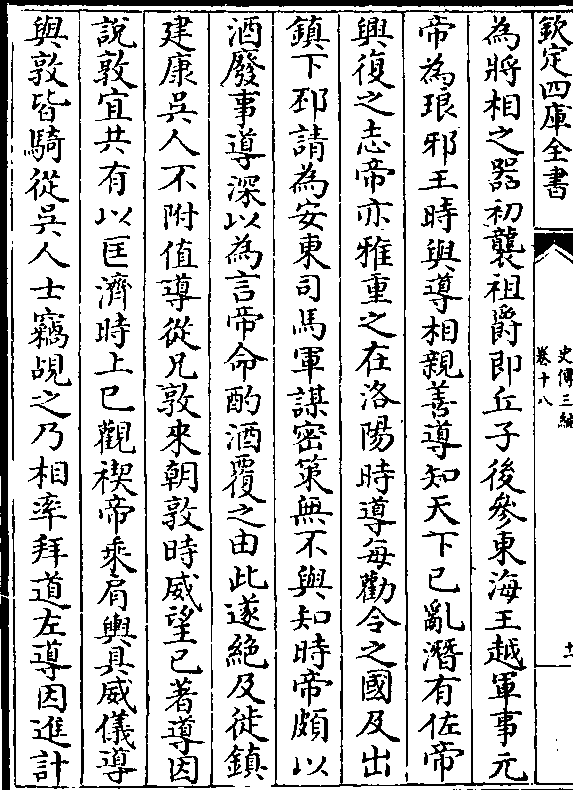 欽定四庫全書
史傳三編
卷十八
十一
為將相之器初襲祖爵即丘子後參東海王越軍事元
帝為琅邪王時與導相親善導知天下已亂潛有佐帝
興復之志帝亦雅重之在洛陽時導每勸令之國及出
鎮下邳請為安東司馬軍謀密策無不與知時帝頗以
酒廢事導深以為言帝命酌酒覆之由此遂絶及徙鎮
建康吳人不附值導從兄敦來朝敦時威望已著導因
說敦宜共有以匡濟時上巳觀禊帝乘肩輿具威儀導
與敦皆騎從吳人士竊覘之乃相率拜道左導因進計